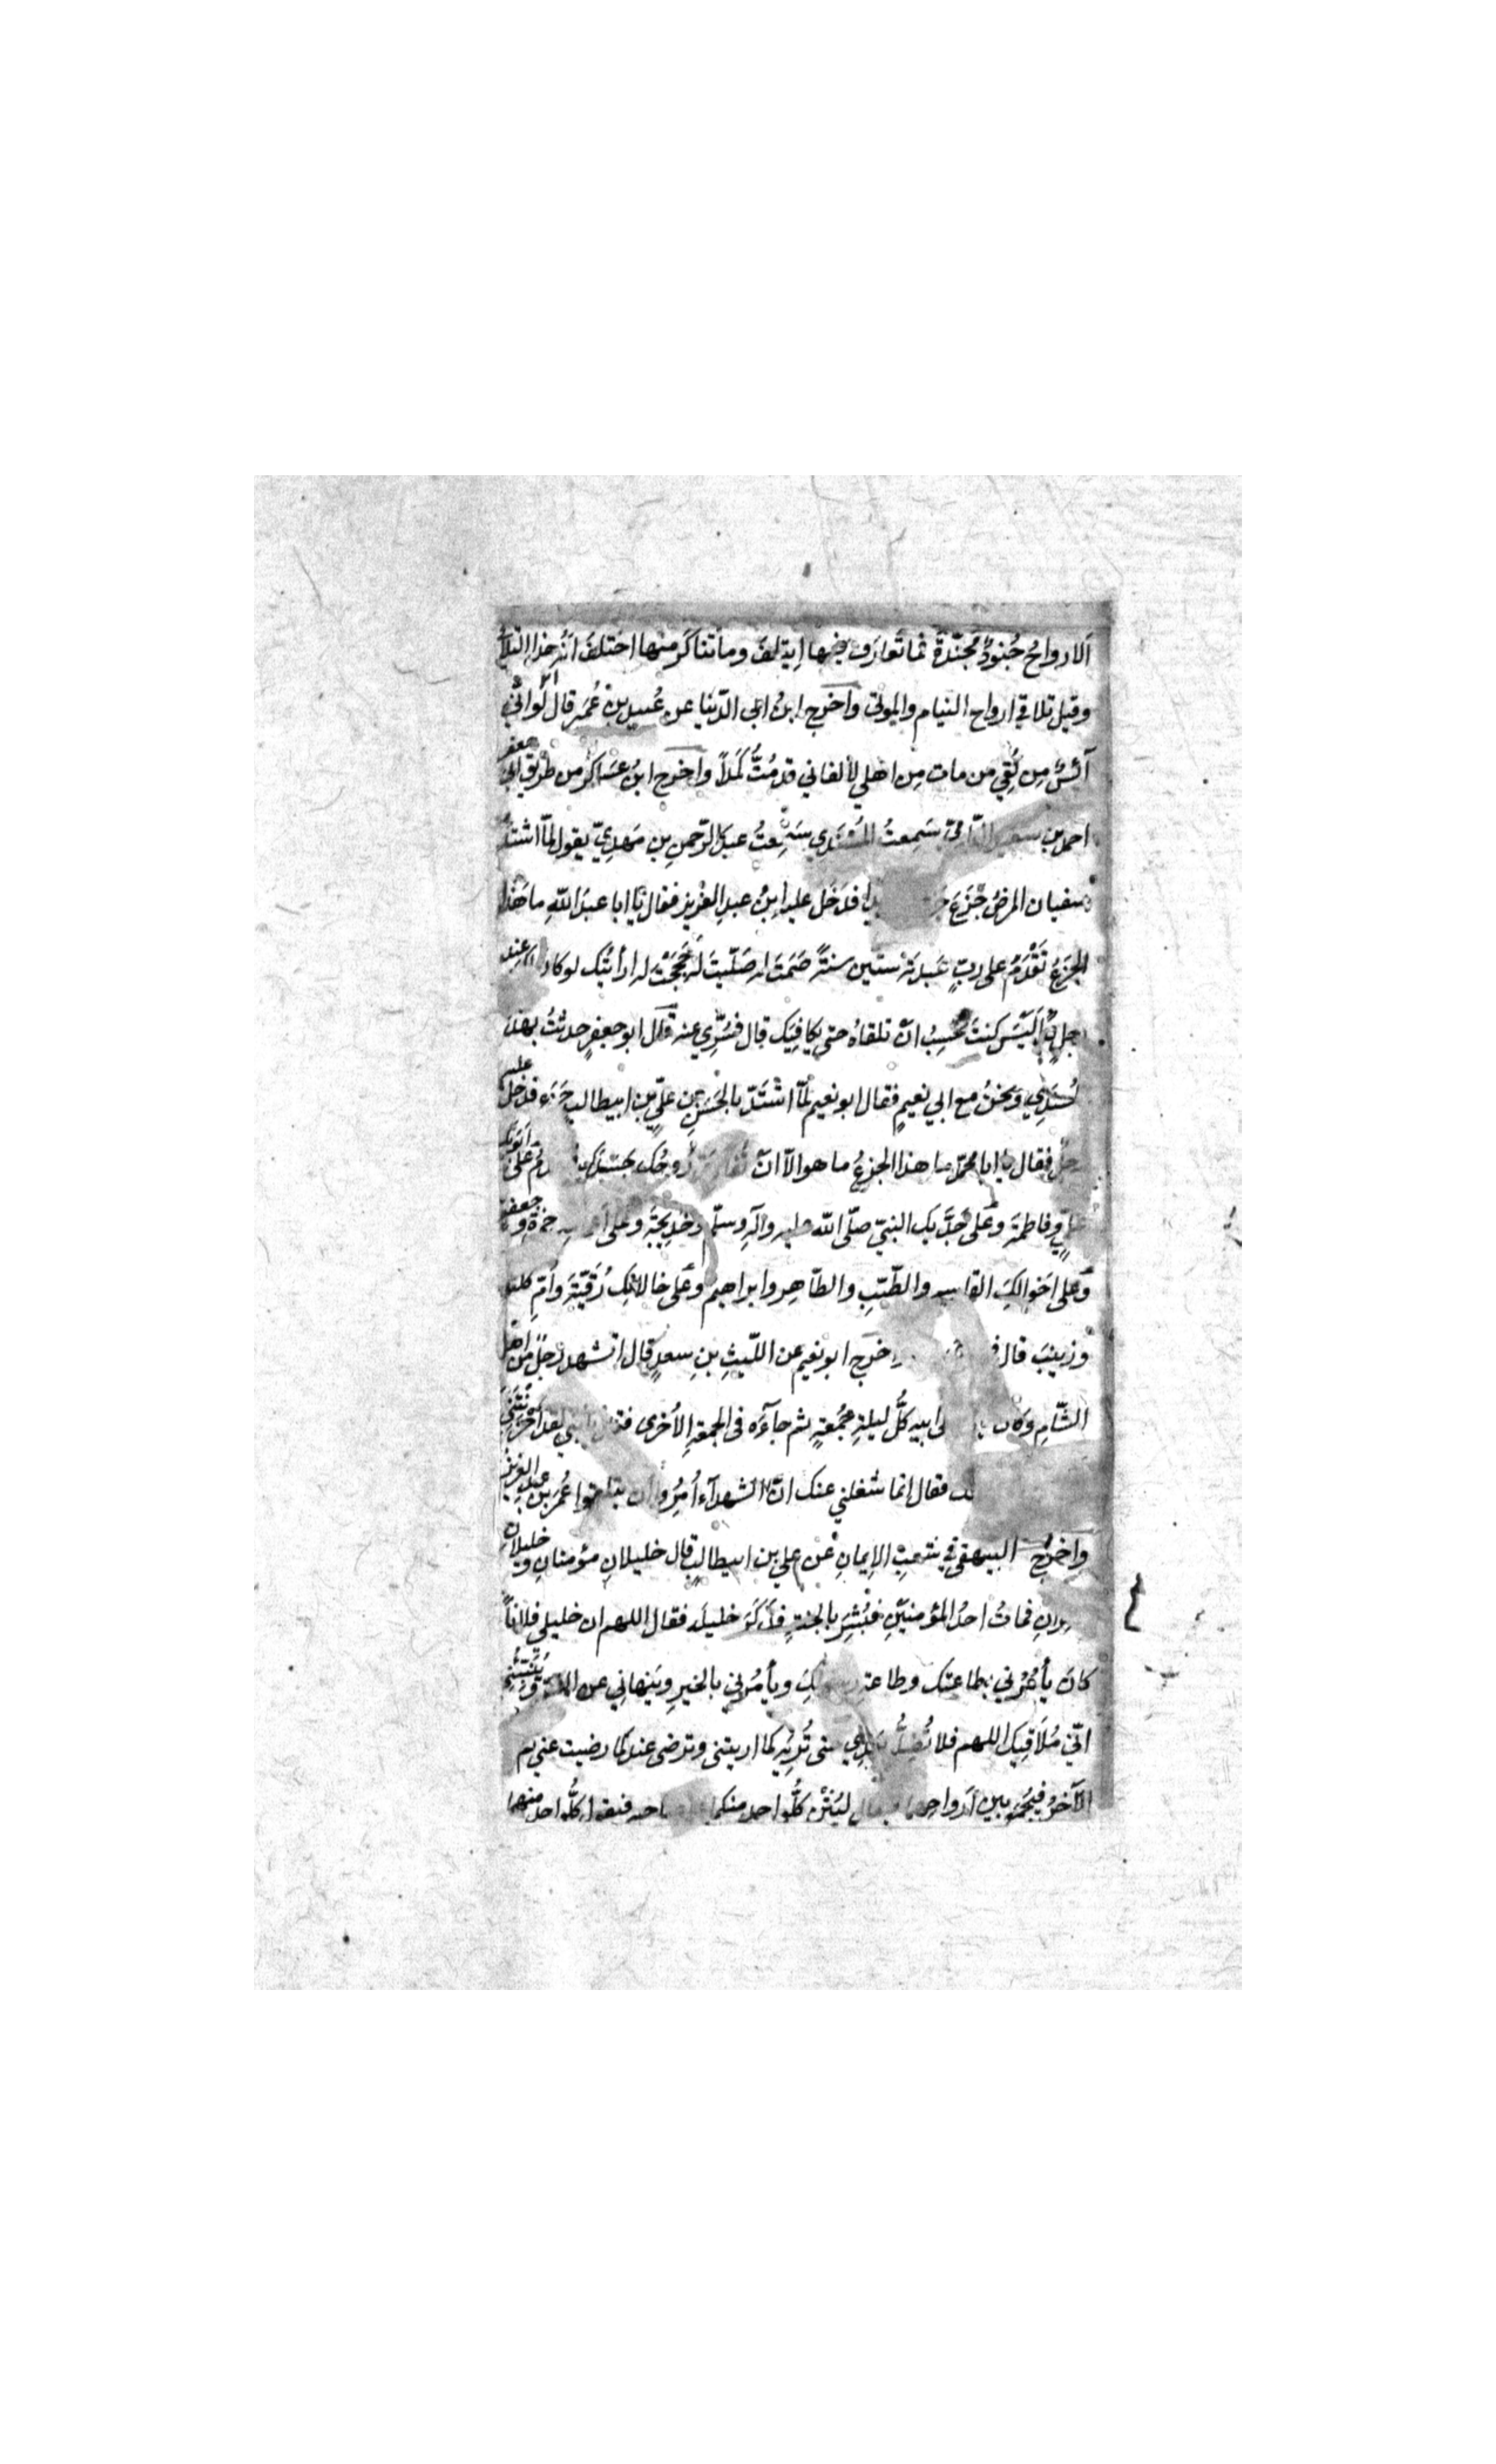 اَلارواحُ جُنودٌ مُجنّدةٌ فما تَعارَف منها اِيتلف وما تناكَر منها اختلفَ انّه هذا التلا
وقيل تلاقي ارواح النيام والموتى واخرج ابنُ ابي الدّنيا عن عُبيد بن عُمَر قال لَو انّي
آئسٌ مِن لُقِي من مات مِن اهلي لألفاني قد مُتُّ كَمَدًا واخرج ابنُ عسَاكر من طريق ابي جعفر
احمد بن سعيد الدّارمي سَمِعتُ سَمِعتُ عبدَ الرّحمنِ بن مَهدِيّ يقول لمّا اشتدّ
بسفيان المرضُ جَزِعَ فدَخل عليه ابنُ عبدِ العزيز فقال يا ابا عبدَ الله ما هَذا
الجزعُ تَقْدَمُ على ربٍّ عَبدتَه ستّين سنةً صُمتَ له صَلّيتَ له حَجَجْتَ له ارأيتَك لو كان لك عند
رجلٍ يدٌ اَلَيسَ كنتَ تحسِبُ انّ تلقاهُ حتى يكافيَك قال فسُرّي عنه قال ابو جعفرٍ حدثتُ بهذ
السُندي ونحنُ مع ابي نعيمٍ فقال ابو نعيم لمّا اشتَدّ بالحَسَن بن عليّ بن ابيطالب جَزَع فدخل عليه
رجلٌ فقال يا ابا محمّد ما هذا الجزعُ ما هو الّا انّ تُفارق رُوحُك جَسَدَك تقدم على ابَوَيك
عليٍّ وفاطمةَ وعَلى جَدَّيك النبيّ صلّى الله عليه وآله وسلّم وخديجةَ وعلى حمزةَ و جعفر
وعَلى اخوالِك القاسم والطّيّبِ والطّاهِر وابراهيم وعَلى خالاتِك رُقَيّةَ وأمّ كلثو
وزينبَ قال واخرج ابو نعيم عن اللّيثِ بنِ سعدٍ قال استشهد رجلٌ مّن اهل
الشّامِ وكان الى ابيه كُلَّ ليلةِ جمُعَةٍ ثم جآءَه فى الجمعةِ الاُخرى فقال يا بُني لقد اَحزنتَنيْ
فقال انما شغلني عنك انّ الشهدآء اُمِرُوا ان يتلقوا عُمَر بن عبد العزيز
واخرج البيهقي في شعب الايمانِ عن علي بن ابيطالبٍ قال خليلانِ مؤمنانِ و خليلان
كافرانِ فماتُ احدُ المؤمنَينِ فبُشِّرَ بالجنةِ فذَكَر خليلَه فقال اللهم ان خليلي فلاناً
كانَ يأمُرُني بطاعتك وطاعةِ رسولِكِ ويأمُرُني بالخيرِ ويَنهاني عن الشرّ و يُنَبِّئني
انّي مُلاقيك اللهم فلا تُضلَّه بَعدِي حتى تُرِيَه كما اريتنى وترضى عنه كما رضيت عني ثم
الآخرُ فيُجمَع بين اَرواحِهما فيقال ليُثْنِ كُلُّ واحد منكما على صاحبه فيقول كلُّ واحد منهما